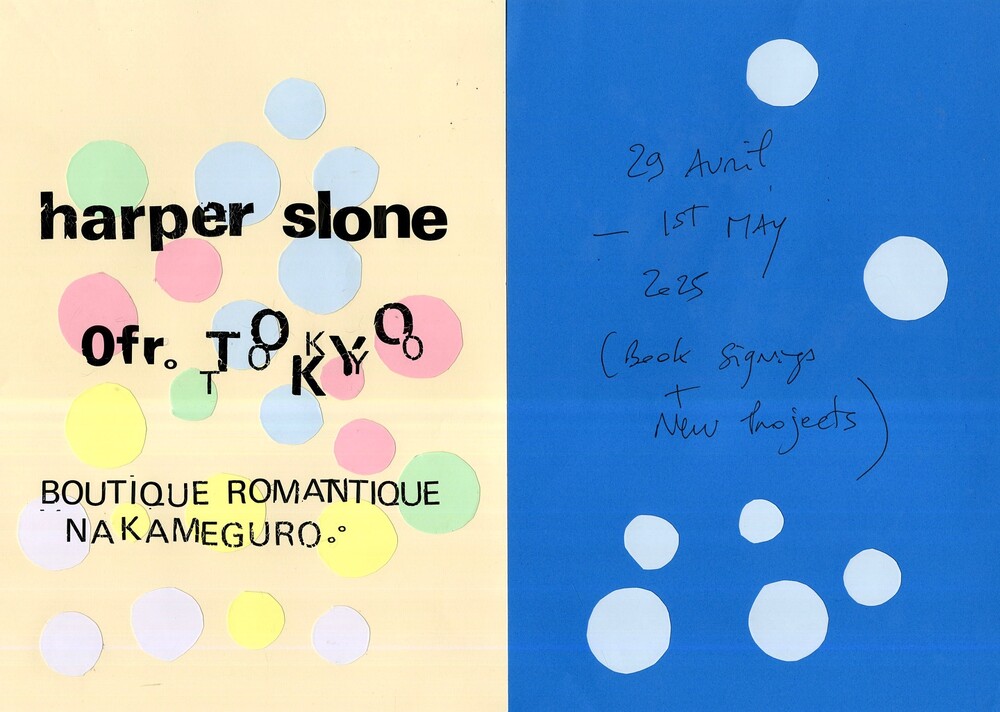 harper slone
0fr. TOKYO
BOUTIQUE ROMANTIQUE
NAKAMEGURO.°
29 Avril
— 1ST MAY
2025
(Book Signings
+
New Projects)